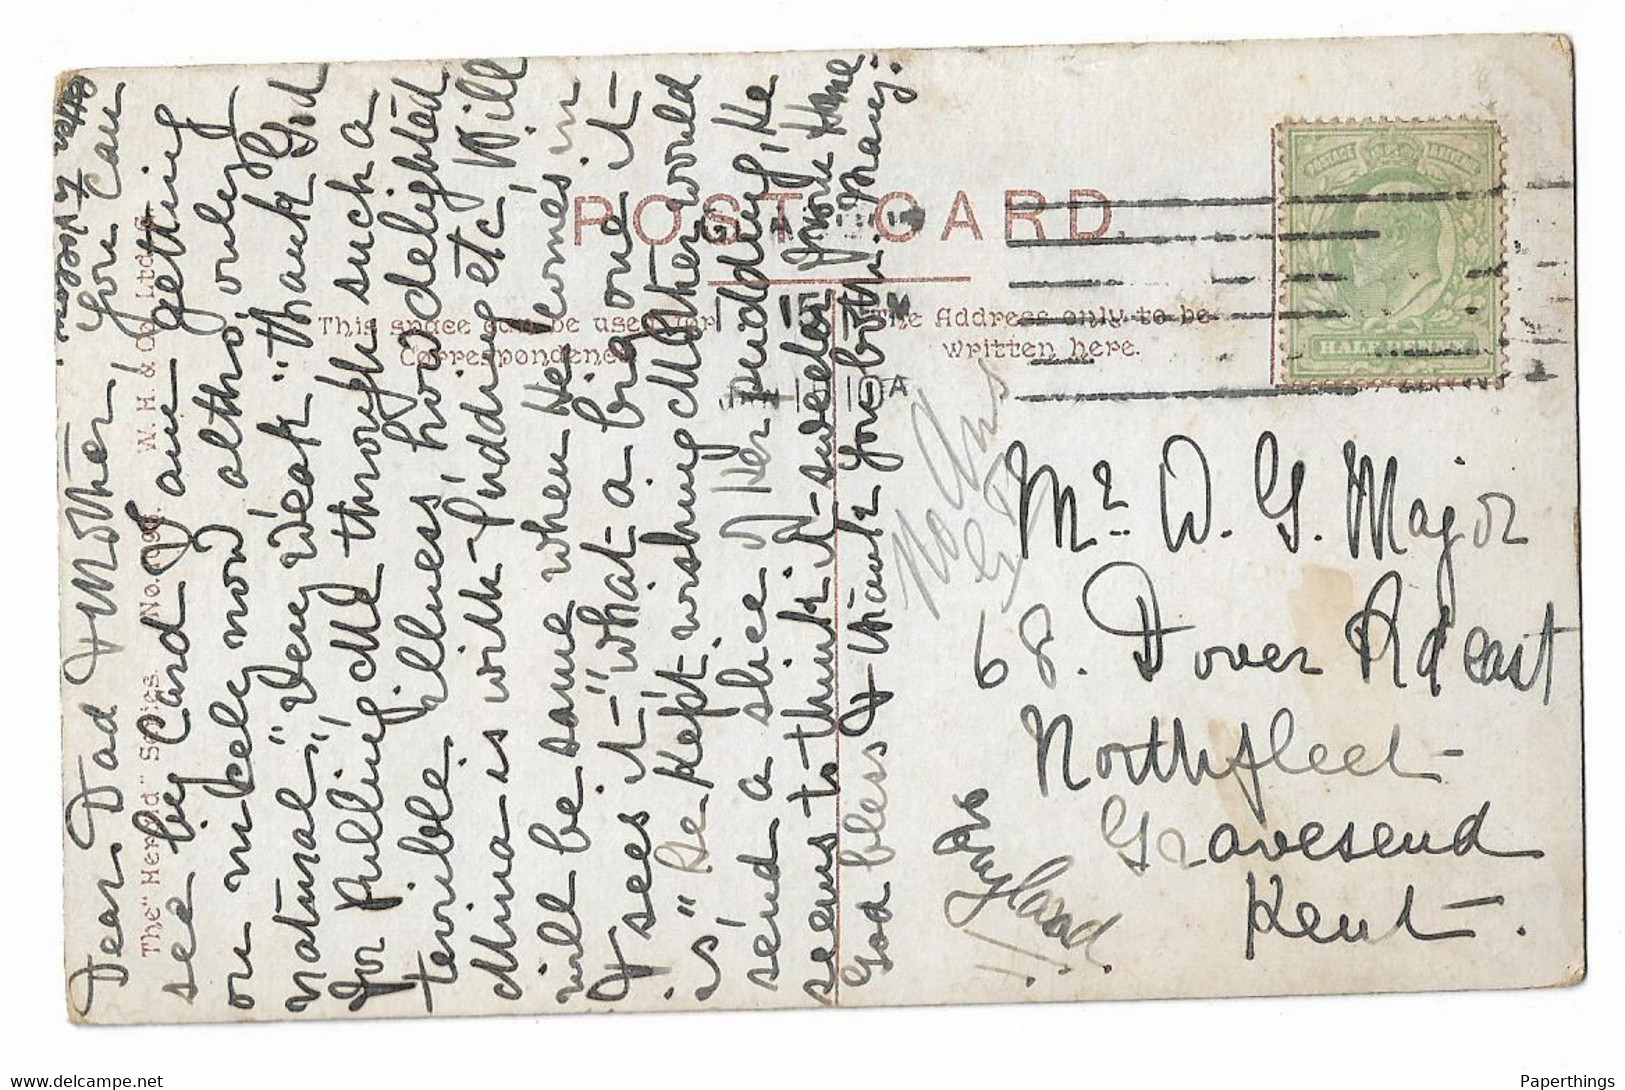 POST CARD
This space can be used for
Correspondence
The Address only to be
written here.
The "Herald" Series. No. W. H. & Co. Ltd.
HALF PENNY
POSTAGE
15
10 A
Dear Dad & Mother, You can
see by Card I am getting
on nicely now altho only
natural, "Very Weak" thank God
for pulling Me through such a
terrible illness, how delighted
Mina is with Pudding etc, Will
will be same when He comes in
& sees it - "What a big one it
is" He kept wishing Mother would
send a slice of Her pudding, He
seems to think it - sweeter from Home
God bless & thank you both. Many.
Mr W. G. Major
68. Dover Rd East
Northfleet
Gravesend
Kent.